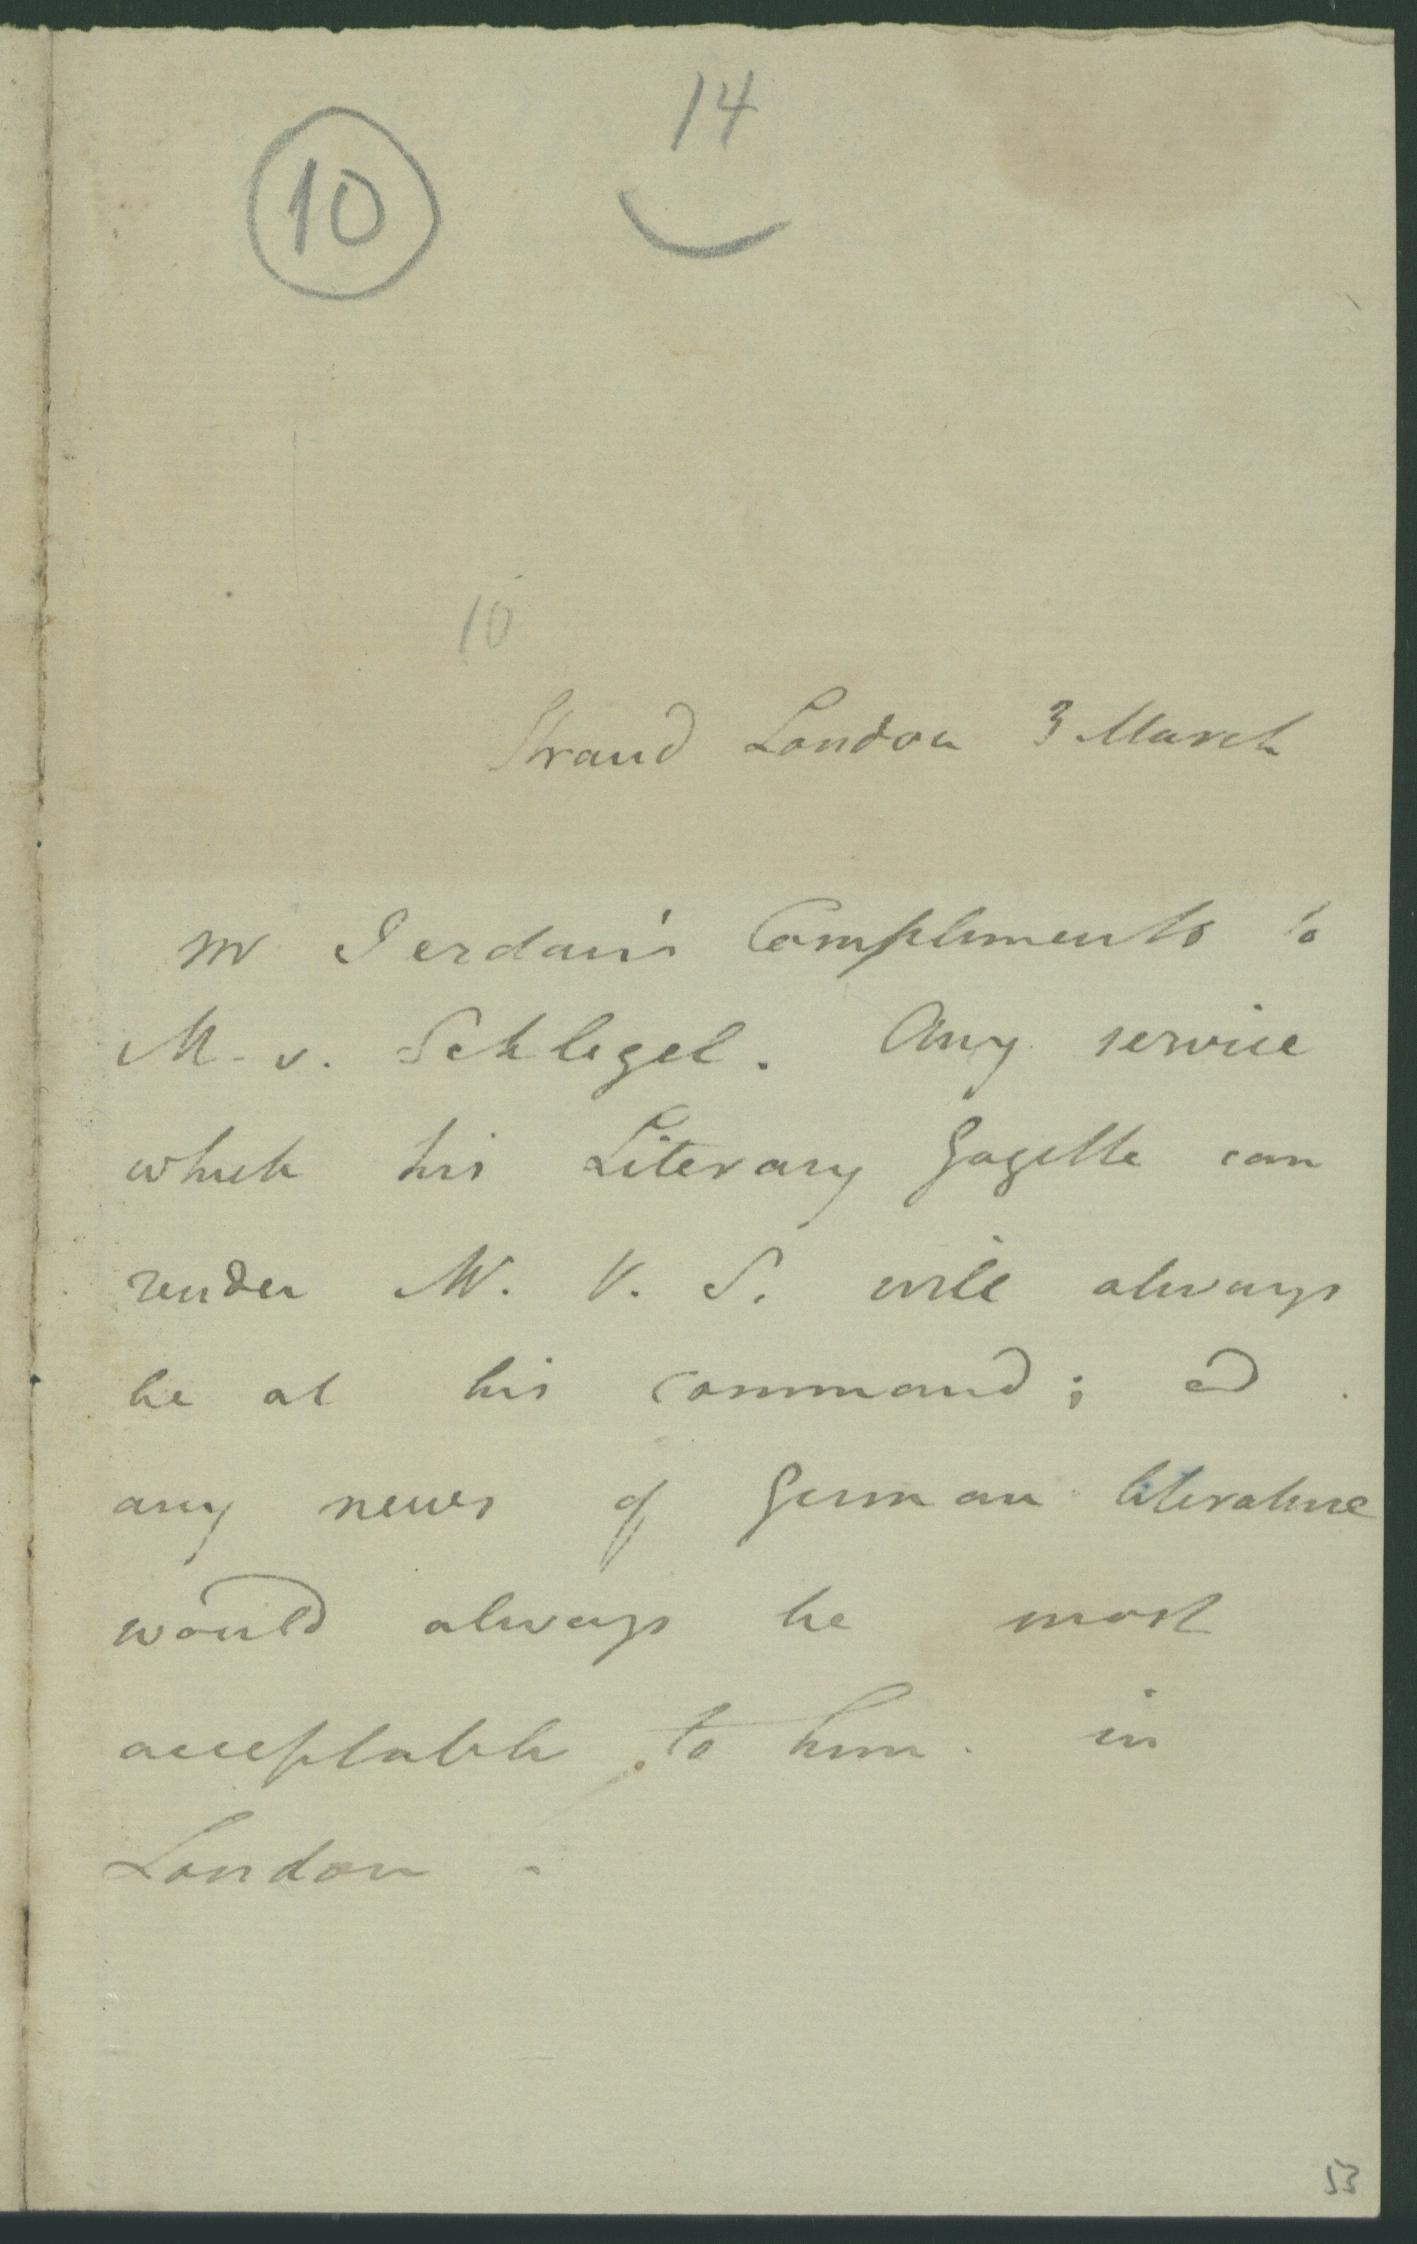 14
10
10
Strand London 3 March
Mr Jerdan's Compliments to
M. v. Schlegel. Any service
which his Literary Gazette can
render M. V. S. will always
be at his command; and
any news of German literature
would always be most
acceptable to him in
London.
53